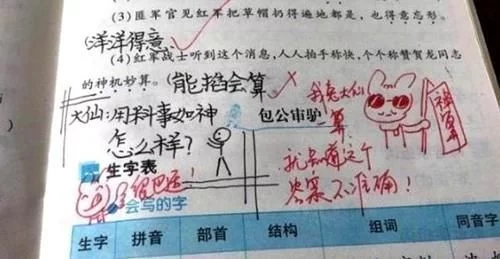 (3) 匪军官见红军把草帽扔得遍地都是,也得意忘形。
(洋洋得意)
(4) 红军战士听到这个消息,人人拍手称快,个个称赞贺龙同志
的神机妙算。(能掐会算)
大仙:用料事如神
怎么样?
我
大仙
算
包公审驴
就知道这个
答案不准确!
生字表
会写的字
生字 拼音 部首 结构 组词 同音字